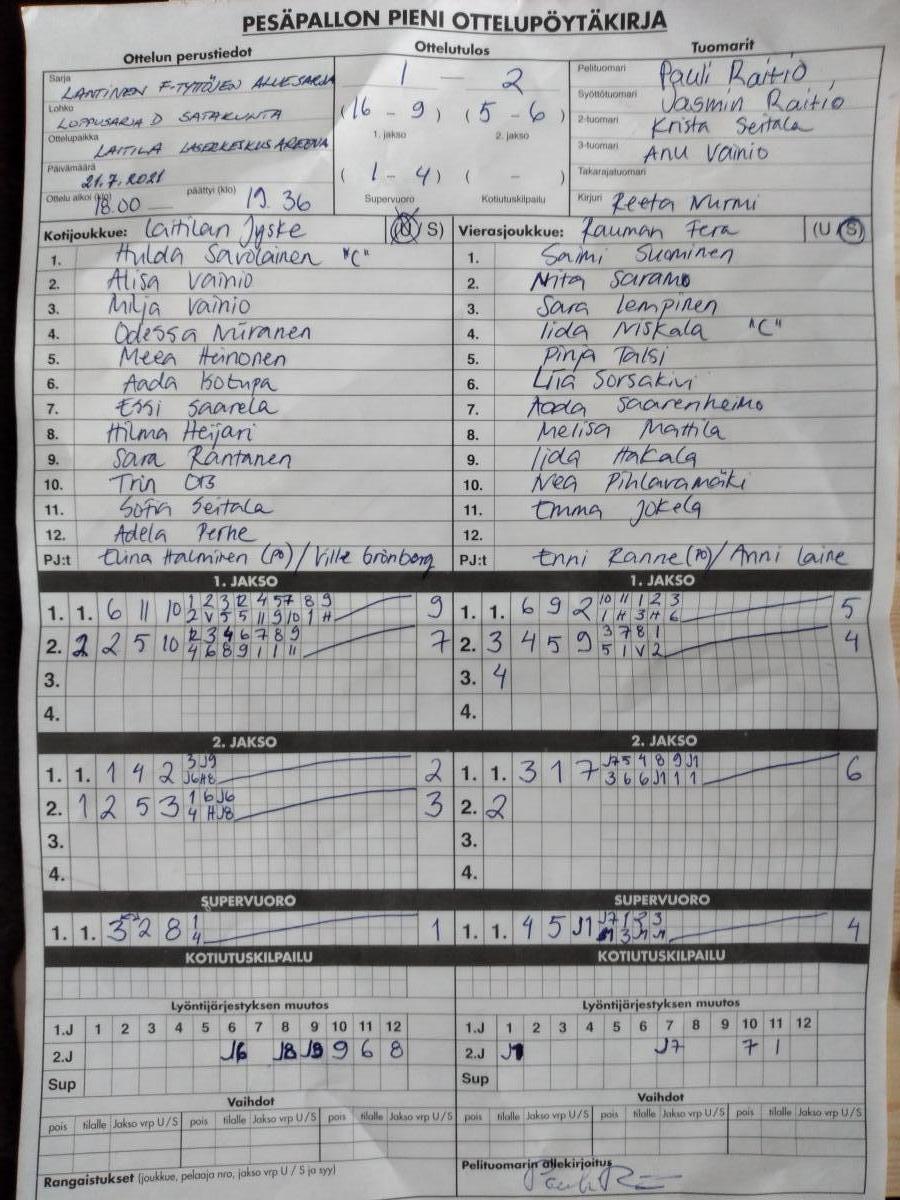 PESÄPALLON PIENI OTTELUPÖYTÄKIRJA
Ottelun perustiedot
Ottelutulos
Tuomarit
Sarja LÄNTINEN F-TYTTÖJEN ALUESARJA
Lohko LOPPUSARJA D SATAKUNTA
Ottelupaikka LAITILA LASERKESKUS AREENA
Päivämäärä 21.7.2021
Ottelu alkoi (klo) 18.00 päättyi (klo) 19.36
1 – 2
(16 - 9) (5 - 6)
1. jakso 2. jakso
(1 - 4) ( - )
Supervuoro Kotiutuskilpailu
Pelituomari Pauli Raitio
Syöttötuomari Jasmin Raitio
2-tuomari Krista Seitala
3-tuomari Anu Vainio
Takarajatuomari
Kirjuri Reeta Nurmi
Kotijoukkue: Laitilan Jyske (U / S)
1. Hulda Savolainen "C"
2. Alisa Vainio
3. Milja Vainio
4. Odessa Niiranen
5. Meea Heinonen
6. Aada Kotupa
7. Essi Saarela
8. Hilma Heijari
9. Sara Rantanen
10. Triin
11. Sofia Seitala
12. Adela Perhe
PJ:t Elina Halminen (PJ) / Ville Grönberg
Vierasjoukkue: Rauman Fera (U / S)
1. Saimi Suominen
2. Niita Saramo
3. Sara Lempinen
4. Iida Niskala "C"
5. Pinja Talsi
6. Liia Sorsakivi
7. Aada Saarenheimo
8. Melisa Mattila
9. Iida Hakala
10. Nea Pihlavamäki
11. Emma Jokela
12.
PJ:t Enni Ranne (PJ) / Anni Laine
1. JAKSO
1. 1. 6 11 10 1 2 3 12 4 5 7 8 9 9
2 V 5 5 11 9 10 1 H
2. 2 2 5 10 12 3 4 6 7 8 9 7
4 6 8 9 1 1 11
3.
4.
1. JAKSO
1. 1. 6 9 2 10 11 1 2 3 5
1 H 3 H 6
2. 3 4 5 9 3 7 8 1 4
5 1 V 2
3. 4
4.
2. JAKSO
1. 1. 1 4 2 3 J9 2
J6 H8
2. 1 2 5 3 1 6 J6 3
4 H J8
3.
4.
2. JAKSO
1. 1. 3 1 7 J7 5 4 8 9 J1 6
3 6 6 J1 1 1
2. 2
3.
4.
SUPERVUORO
1. 1. 3 2 8 1 1
4
SUPERVUORO
1. 1. 4 5 J1 J7 1 2 3 4
KOTIUTUSKILPAILU
KOTIUTUSKILPAILU
Lyöntijärjestyksen muutos
1.J 1 2 3 4 5 6 7 8 9 10 11 12
2.J J6 J8 J9 9 6 8
Sup
Lyöntijärjestyksen muutos
1.J 1 2 3 4 5 6 7 8 9 10 11 12
2.J J1 J7 7 1
Sup
Vaihdot
pois tilalle Jakso vrp U/S pois tilalle Jakso vrp U/S pois tilalle Jakso vrp U/S
Vaihdot
pois tilalle Jakso vrp U/S pois tilalle Jakso vrp U/S pois tilalle Jakso vrp U/S
Rangaistukset (joukkue, pelaaja nro, jakso vrp U / S ja syy)
Pelituomarin allekirjoitus